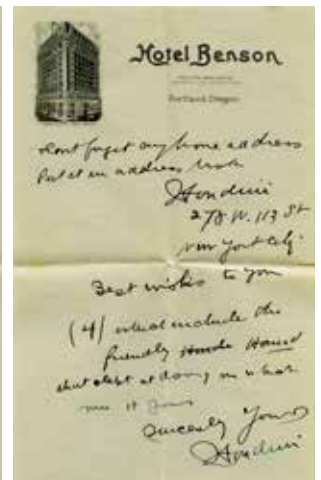 Hotel Benson
Portland, Oregon
dont forget my home address
Put it in address book
Houdini
278 W. 113 St
New York City
Best wishes to you
(4) which include the
friendly Hand
that at
me it
Sincerely Yours
Houdini